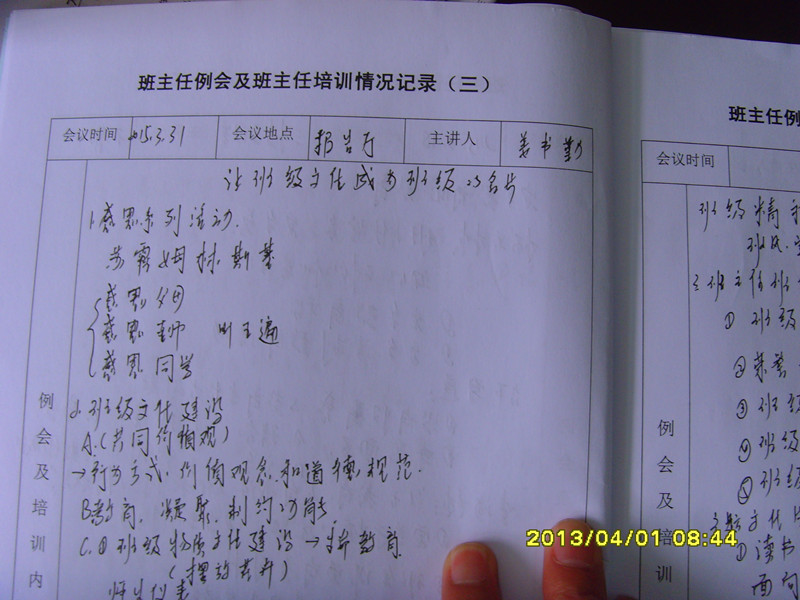 班主任例会及班主任培训情况记录（三）
会议时间 2015.3.31 会议地点 报告厅 主讲人 姜书勤
让班级文化成为班级的名片
1.感恩系列活动.
苏霍姆林斯基
感恩父母
感恩老师
感恩同学
2.班级文化建设
A.(共同价值观)
→行为方式.价值观念.和道德规范.
B教育.凝聚.制约功能
C.①班级物质文化建设→ 教育
(摆放花卉)
师生仪表
例会及培训内
班主任例
会议时间
班级精
班风.
三班主任班
① 班级
② 荣誉
③ 班级
④ 班级
⑤ 班级
文化
① 读书
面向
例会及培训
2013/04/01 08:44